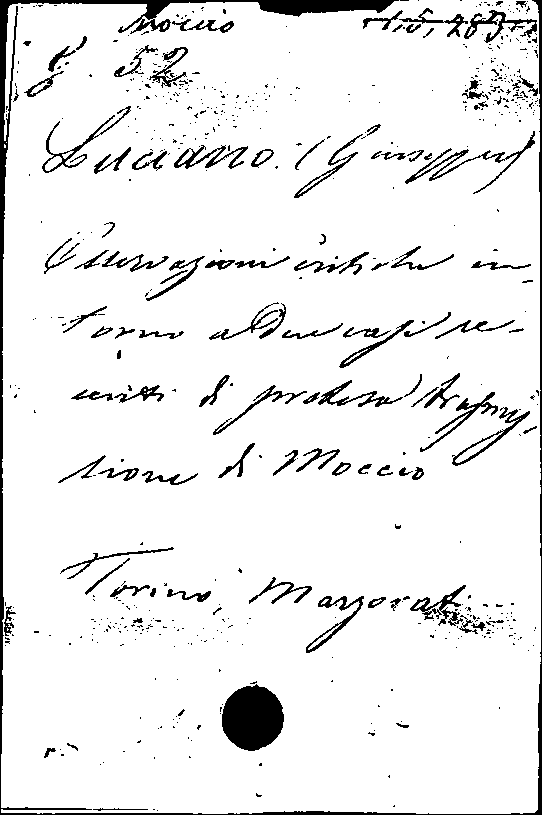 Moccio
g. 52
Luciano (Giuseppe)
Osservazioni critiche in-
torno a Due casi re-
centi di pretesa trasmis-
sione di Moccio
Torino, Marzorati